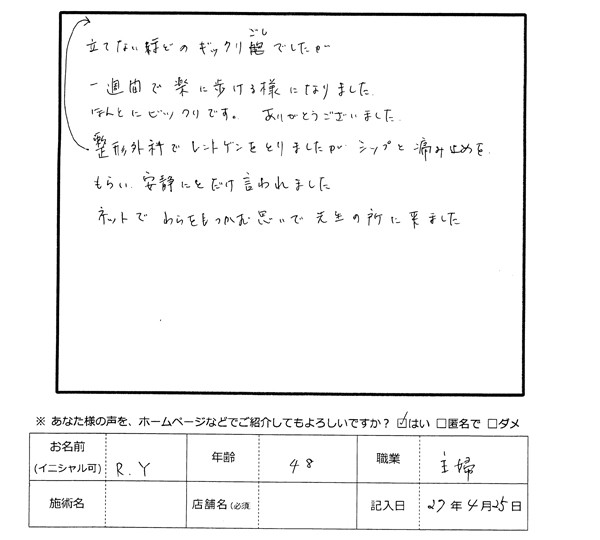 立てない程どのギックリ腰でしたが
ごし
一週間で楽に歩ける様になりました.
ほんとにビックリです。ありがとうございました.
整形外科でレントゲンをとりましたが シップと痛み止めを.
もらい.安静にとだけ言われました
ネットで わらをもつかむ思いで 先生の所に来ました
※ あなた様の声を、ホームページなどでご紹介してもよろしいですか？ ☑はい □匿名で □ダメ
お名前 (イニシャル可) R.Y 年齢 48 職業 主婦
施術名 店舗名(必須 記入日 27年4月25日